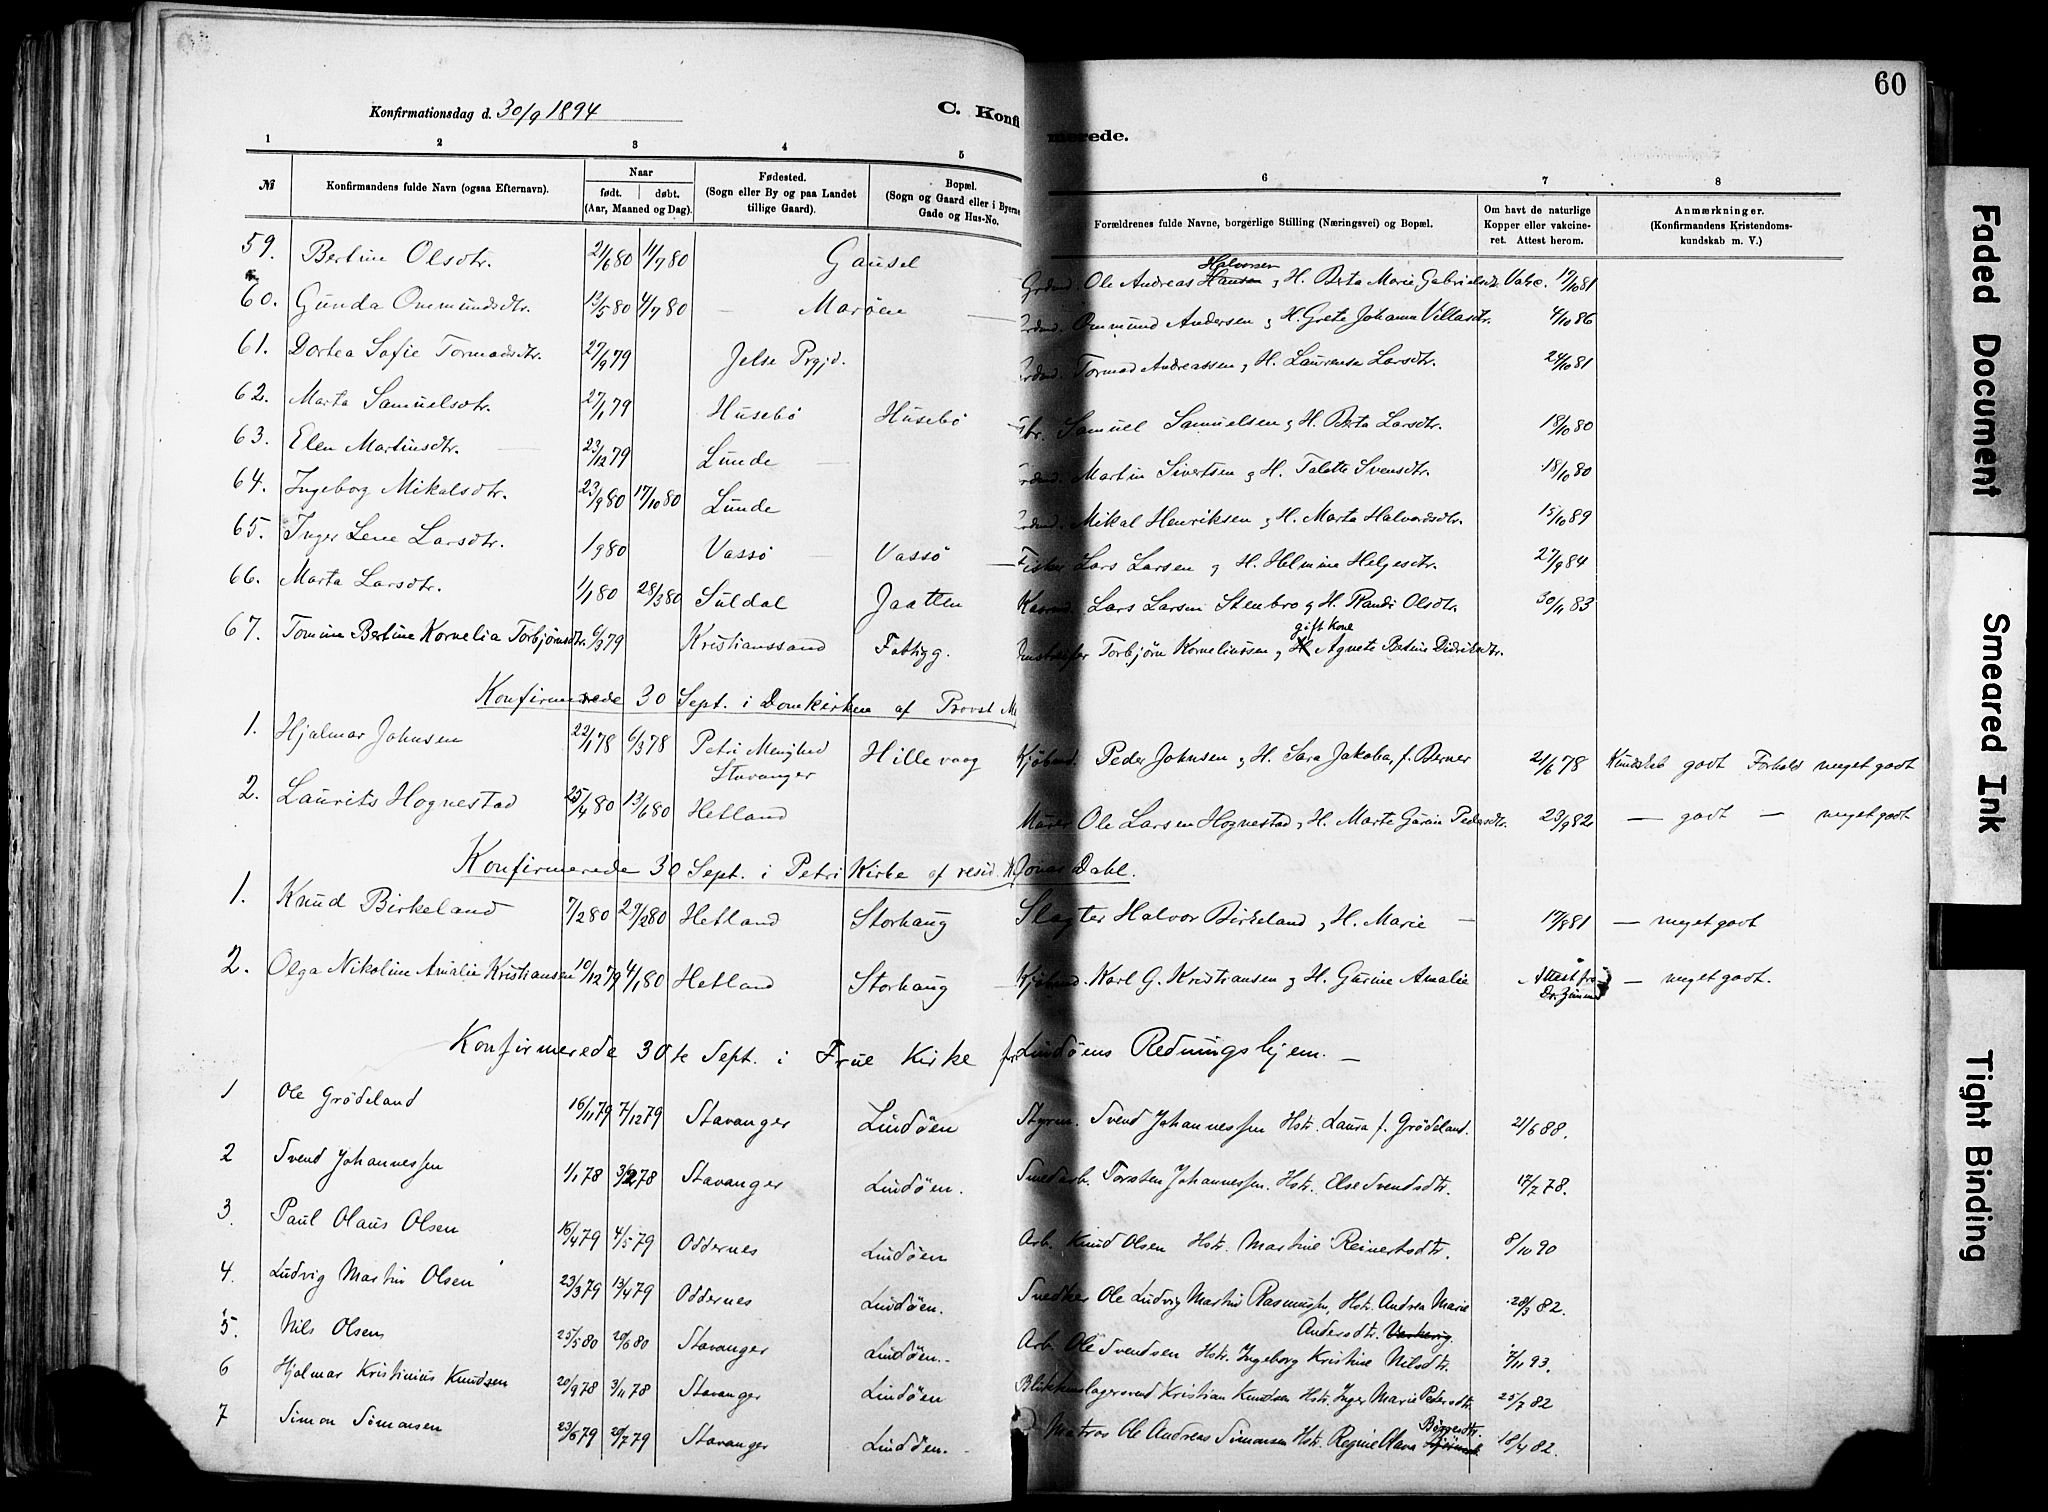 60
Konfirmationsdag d. 30/9 1894
C. Konfi merede.
1 2 3 4 5 6 7 8
№ Konfirmandens fulde Navn (ogsaa Efternavn). Naar født. døbt. (Aar, Maaned og Dag). Fødested. (Sogn eller By og paa Landet tillige Gaard). Bopæl. (Sogn og Gaard eller i Byerne Gade og Hus-No. Forældrenes fulde Navne, borgerlige Stilling (Næringsvei) og Bopæl. Om havt de naturlige Kopper eller vakcineret. Attest herom. Anmærkninger. (Konfirmandens Kristendomskundskab m. V.)
59. Bertine Olsdtr. 21/6 80 11/7 80 Gausel Grdmd. Ole Andreas Hansen Halvorsen & H. Berta Marie Gabrielsdtr. Vakc. 17/10 81
60. Gunda Ommundsdtr. 13/5 80 4/7 80 — Marøen — Ommund Andersen & H. Grete Johanne Villasdtr. 4/10 86
61. Dortea Sofie Tormodsdtr. 27/9 79 Jelse Prgjd. Tormod Andreassen & H. Laurense Larsdtr. 24/10 81
62. Marta Samuelsdtr. 27/1 79 Husebø Husebø Samuel Samuelsen & H. Berta Larsdtr. 18/10 80
63. Elen Martinsdtr. — 23/12 79 Lunde — Martin Sivertsen & H. Talette Svensdtr. 18/10 80
64. Ingeborg Mikalsdtr. 23/9 80 17/10 80 Lunde Mikal Henriksen & H. Marta Halvordsdtr. 15/10 89
65. Inger Lene Larsdtr. 1980 Vassø — Vassø — Fisker Lars Larsen & H. Helmine Helgesdtr. 27/9 84
66. Marta Larsdtr. 1/1 80 28/3 80 Suldal Jaatten Lars Larsen Stenbro & H. Randi Olsdtr. 30/11 83
67. Tomine Bertine Kornelia Torbjørnsdtr. 6/3 79 Kristianssand Fattigg. Torbjørn Korneliussen & H gift kone Agnete Bertine Didriksdtr.
Konfirmerede 30 Sept. i Domkirken af Provst M
1. Hjalmar Johnsen 22/1 78 6/3 78 Petri Menighed Stavanger Hillevaag Kjøbmd. Peder Johnsen & H. Sara Jakoba, f. Berner 21/6 78 Kundskab godt Forhold meget godt
2. Laurits Hognestad 25/4 80 13/6 80 Hetland Murer Ole Larsen Hognestad, H. Marte Gurine Pedersdtr. 23/9 82 — godt — meget godt
Konfirmerede 30 Sept. i Petri Kirke af resid. K. Jonas Dahl.
1. Knud Birkeland 7/2 80 29/2 80 Hetland Storhaug Slagter Halvor Birkeland & H. Marie — 17/8 81 — meget godt
2. Olga Nikoline Amalie Kristiansen 10/12 79 4/1 80 Hetland Storhaug Kjøbmd. Karl G. Kristiansen & H. Gurine Amalie Attest fra Dr. — meget godt.
Konfirmerede 30te Sept. i Frue Kirke fr. Lindøens Redningshjem. —
1 Ole Grödeland 16/11 79 7/12 79 Stavanger Lindöen Styrm. Svend Johannessen Hstr. Laura f. Grödeland. 21/6 88.
2 Svend Johannessen 1/1 78 3/2 78 Stavanger Lindöen. Smedarb. Torsten Johannessen. Hstr. Else Svendsdtr. 17/7 78.
3. Paul Olaus Olsen 16/4 79 4/5 79 Oddernes Lindöen Arb. Knud Olsen Hstr. Martine Reinertsdtr. 8/10 90
4. Ludvig Martin Olsen 23/3 79 13/4 79 Oddernes Lindöen. Snedker Ole Ludvig Martin Rasmussen, Hstr. Andrea Marie Andersdtr. 28/3 82.
5. Nils Olsen 25/5 80 20/6 80 Stavanger Lindöen. Arb. Ole Svendsen Hstr. Ingeborg Kristine Nilsdtr. 7/11 93.
6 Hjalmar Kristinius Knudsen 20/9 78 3/11 78 Stavanger Lindöen Blikkenslagersvend Kristian Knudsen Hstr. Inger Marie Pedersdtr. 25/7 82
7 Simon Simonsen 23/6 79 20/7 79 Stavanger Lindöen. Matros Ole Andreas Simonsen Hstr. Regine Olava Børgesdtr. 18/4 82.
Faded Document
Smeared Ink
Tight Binding